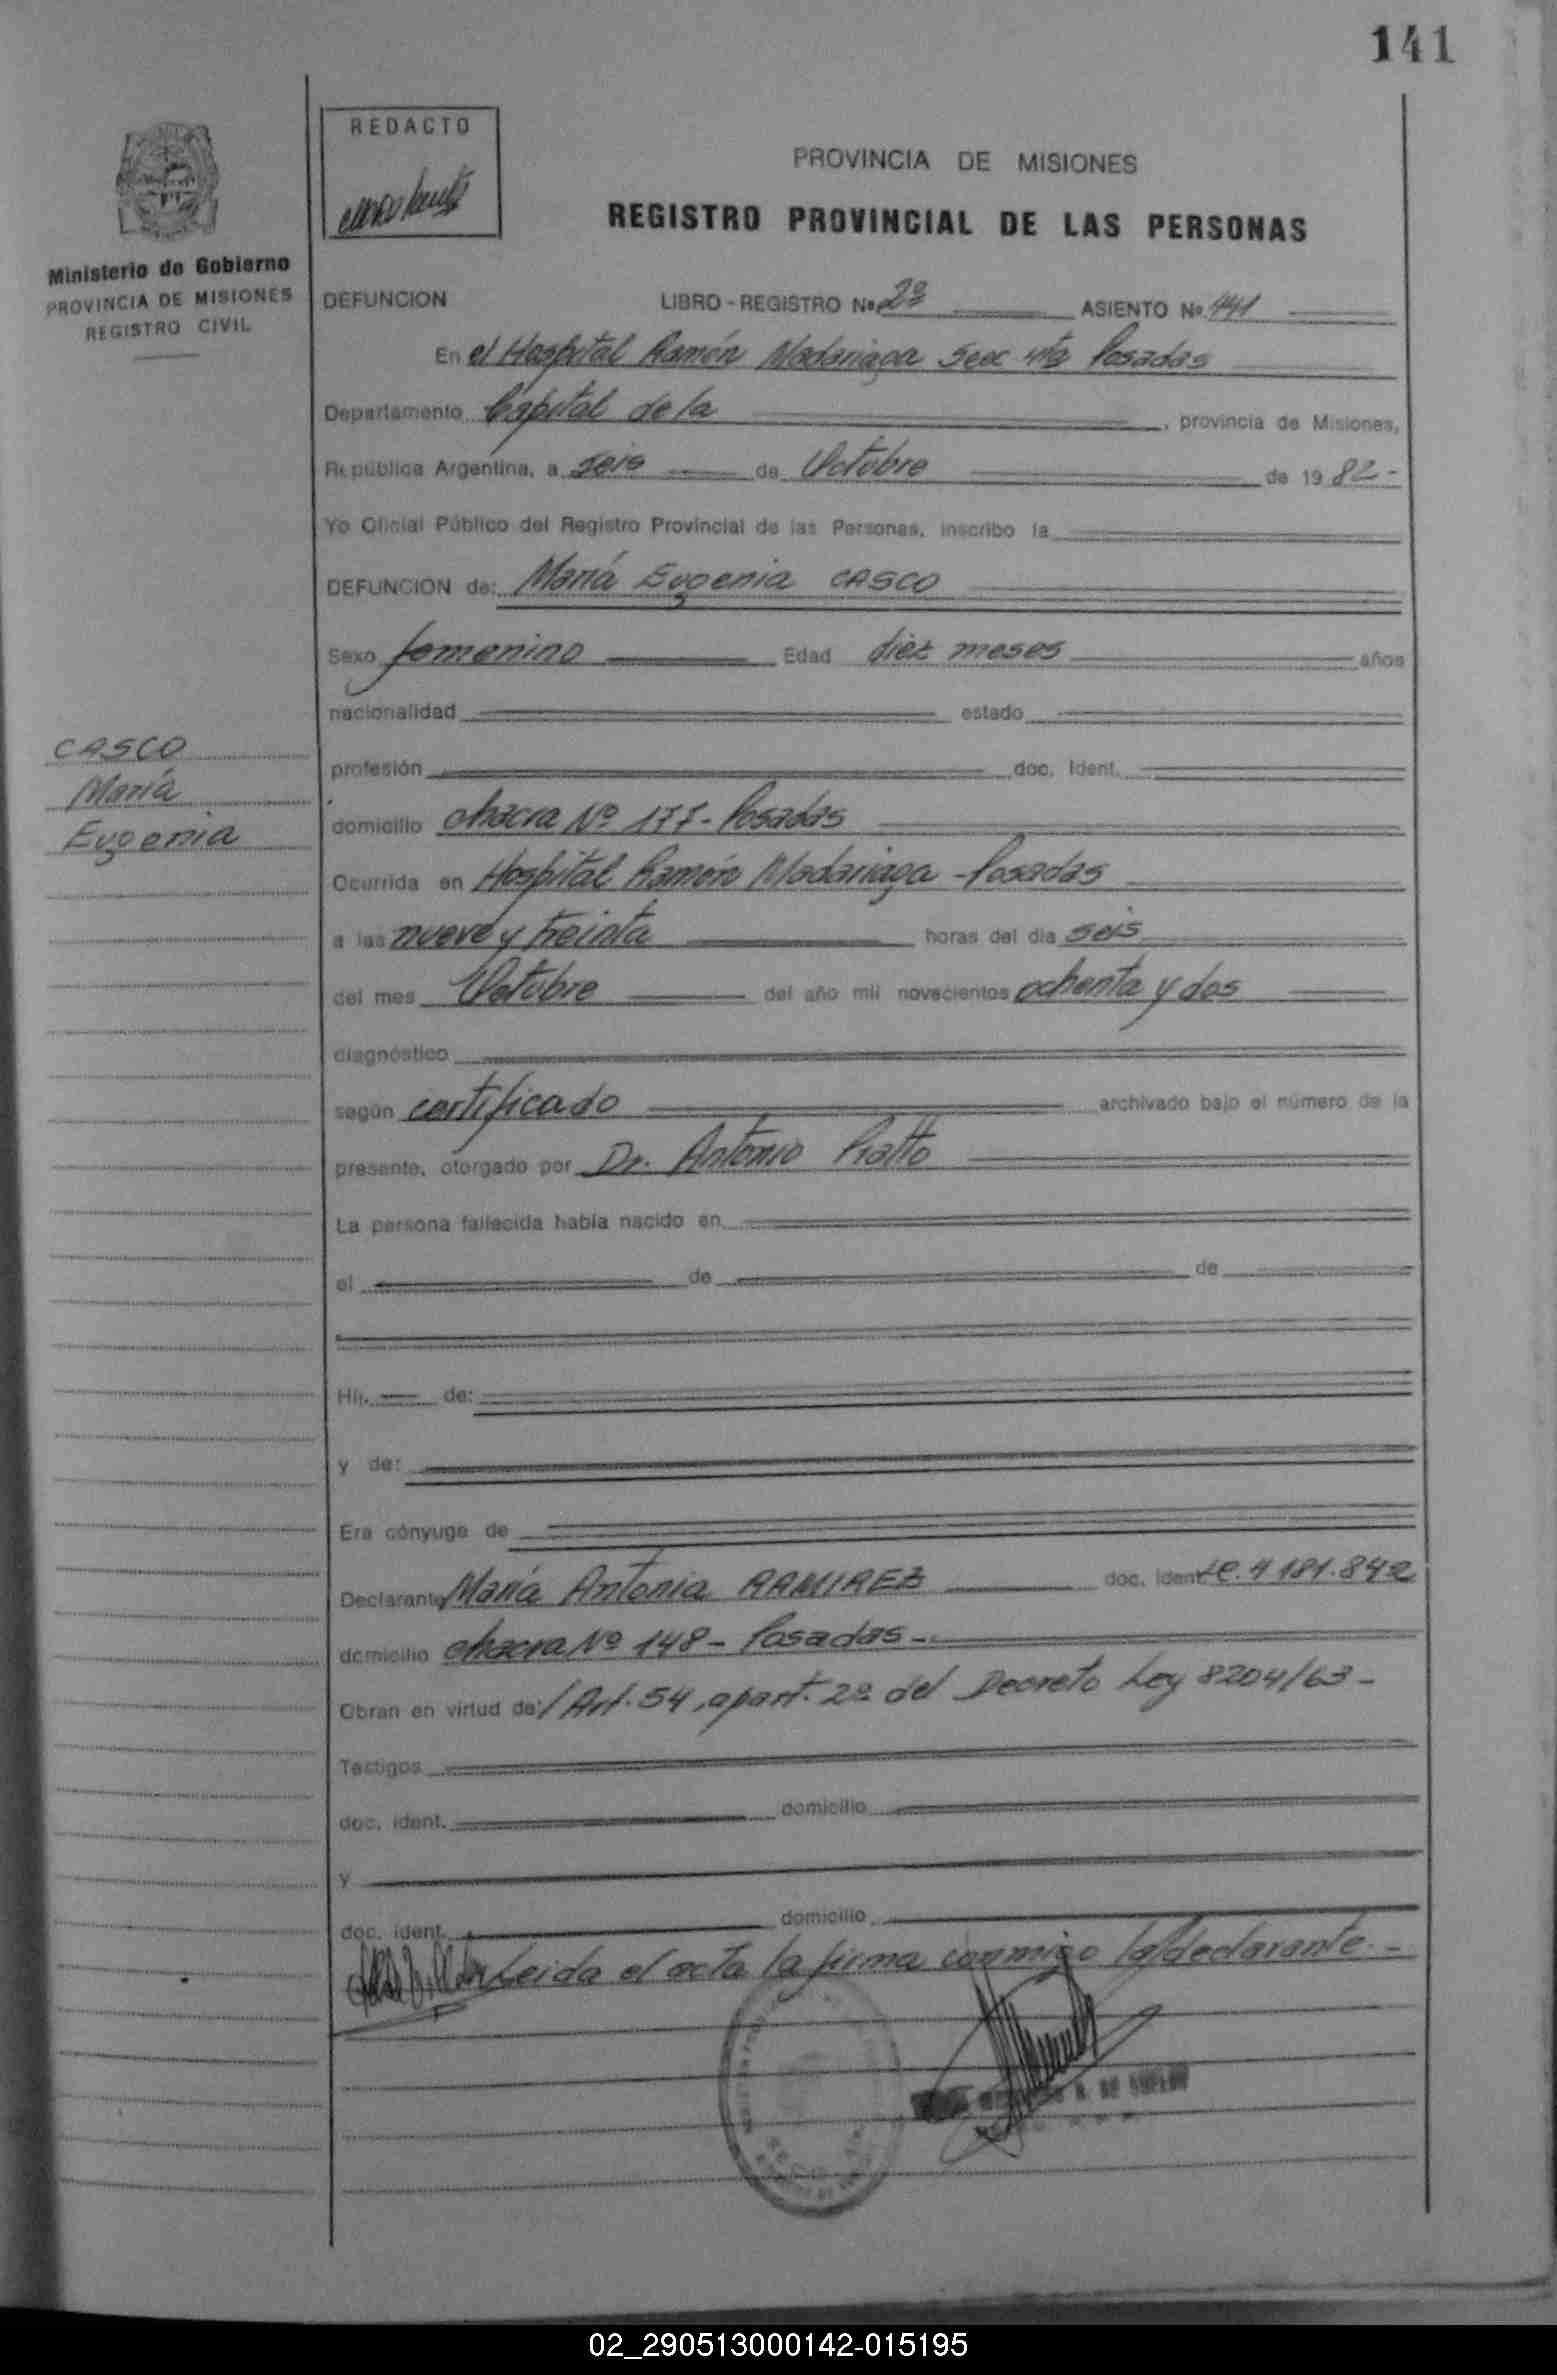 141
REDACTO
PROVINCIA DE MISIONES
REGISTRO PROVINCIAL DE LAS PERSONAS
Ministerio de Gobierno
PROVINCIA DE MISIONES
REGISTRO CIVIL
DEFUNCION LIBRO - REGISTRO Nº 2º ASIENTO Nº 141
En el Hospital Ramón Madariaga Secc 4ta Posadas
Departamento Capital de la , provincia de Misiones,
República Argentina, a seis de Octubre de 19 82 -
Yo Oficial Público del Registro Provincial de las Personas, inscribo la
DEFUNCION de: María Eugenia CASCO
Sexo femenino Edad diez meses años
nacionalidad estado
CASCO
María
Eugenia
profesión doc. Ident.
domicilio chacra Nº 177 - Posadas
Ocurrida en Hospital Ramón Madariaga - Posadas
a las nueve y treinta horas del día seis
del mes Octubre del año mil novecientos ochenta y dos
diagnóstico
según certificado archivado bajo el número de la
presente, otorgado por Dr. Antonio
La persona fallecida había nacido en
el de de
Hij. de:
y de:
Era cónyuge de
Declarante María Antonia RAMIREZ doc. Ident. 4.181.842
domicilio chacra Nº 148 - Posadas -
Obran en virtud de:/ Art. 54, apart. 2º del Decreto Ley 8204/63 -
Testigos
doc. ident. domicilio
y
doc. ident. domicilio
Leida el acta la firma conmigo la declarante. -
02_290513000142-015195